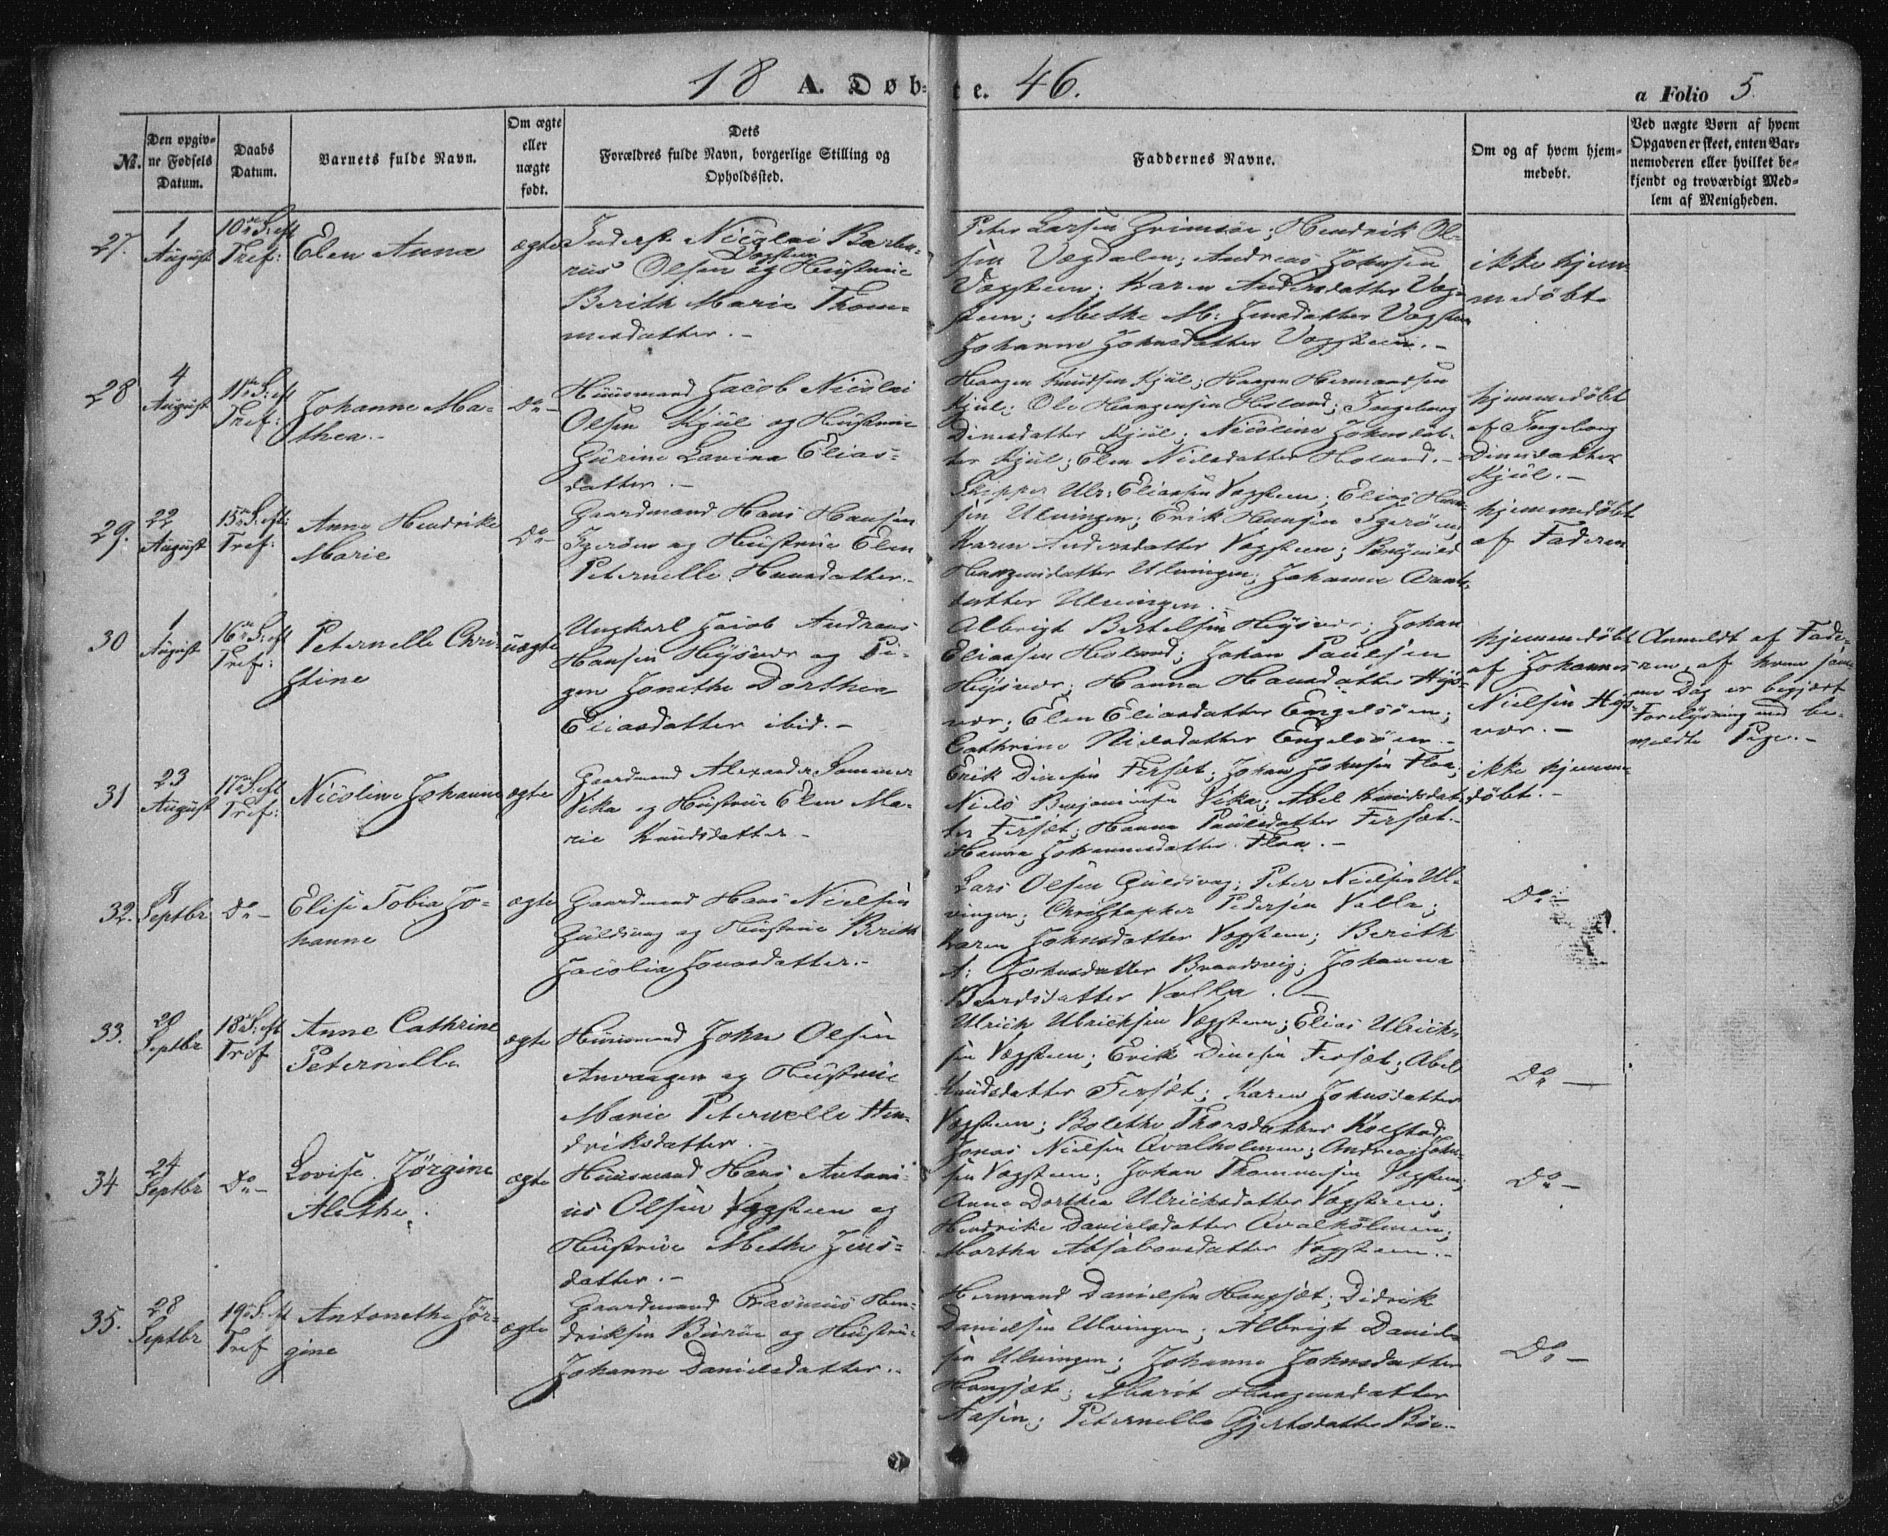 18 A. Døb= te. 46.
a Folio 5.
No.
Den opgiv=
ne Fødsels
Datum.
Daabs
Datum.
Barnets fulde Navn.
Om ægte
eller
uægte
født.
Dets
Forældres fulde Navn, borgerlige Stilling og
Opholdssted.
Faddernes Navne.
Om og af hvem hjem=
medøbt.
Ved uægte Børn af hvem
Opgaven er skeet, enten Bar=
nemoderen eller hvilket be=
kjendt og troværdigt Med=
lem af Menigheden.
27.
1
August
10de S: eft
Tref:
Elen Anna
ægte
Inderst Nicolai Barba-
Vægsteen
rus Olsen og Hustrue
Berith Marie Thom-
mesdatter.-
Peter Larsen; Hendrik Ol-
sen Vægdalen; Andreas Johnsen
Vægsteen; Karen Andersdatter Væg-
steen; Methe M: Jensdatter Vægsteen
Johanne Johnsdatter Vægsteen.-
ikke hjem-
medøbt
28
4
August
11te S: eft
Tref:
Johanne Ma-
thea.-
Do-
Huusmand Jacob Nicolai
Olsen Kjül og Hustrue
Lavina Elias-
datter.-
Haagen Knudsen Kjül; Haagen Hermandsen
Kjül; Ole Haagensen Holand; Ingeborg
Dinesdatter Kjül; Nicoline Johnsdat-
ter Kjül; Elen Nielsdatter Holand.-
hjemmedøbt
af Ingeborg
Dinesdatter
Kjül.-
29.
22
August
15de S: eft:
Tref:
Anne Hendrike
Marie
Do-
Gaardmand Hans Hansen
Igerøen og Hustrue Elen
Peternelle Hansdatter.-
Skipper Ulr: Eliassen Vægsteen; Elias Han-
sen Ulvingen; Erik Hansen Igerøen;
Karen Andersdatter Vægsteen;
Haagensdatter Ulvingen; Johanna Arnt-
datter Ulvingen.
hjemmedøbt
af Faderen
30
1
August
16de S: eft
Tref:
Peternelle Chri-
stine
uægte
Ungkarl Jacob Andreas
Hansen Høysvær og Pi-
gen Jonetha Dorthea
Eliasdatter ibid.-
Albrigt Bertelsen Høysvær; Johan
Eliassen Holand; Johan Paulsen
Høysvær; Hanna Hansdatter Høys-
vær; Elen Eliasdatter Engelsøen;
Cathrine Nielsdatter Engelsøen.-
hjemmedøbt
af Johannes
Nielsen Høys-
vær.-
Anmeldt af Fade-
ren, af hvem samme
Dag er begjært
Forelysning med be-
meldte Pige.-
31
23
August
17de S: eft
Tref:
Nicoline Johanna
ægte
Gaardmand Alexander Sommer
Vika og Hustrue Elen Ma-
rie Knudsdatter.-
Erik Dinesen Fersæt; Johan Johnsen Floa;
Niels Benjaminsen Vika; Abel Knudsdat-
ter Fersæt; Hanna Paulsdatter Fersæt.
Hanna Johannesdatter Floa.-
ikke hjemme-
døbt.-
32.
1
Septbr
Do-
Elise Tobia Jo-
hanne
ægte
Gaardmand Hans Nielsen
Guldsvag og Hustrue Berith
Jacobia Jonasdatter.-
Lars Olsen Guldsvag; Peter Nielsen Ul-
vingen; Christopher Pedersen Valla;
Karen Johnsdatter Vægsteen; Berith
A: Johnsdatter Brandsvig; Johanna
Baardsdatter Valla.-
Do-
33.
20
Septbr
18de S: eft
Tref
Anne Cathrine
Peternelle
ægte
Huusmand John Olsen
og Hustrue
Marie Peternelle Hen-
driksdatter.-
Ulrich Ulrichsen Vægsteen; Elias Ulrich-
sen Vægsteen; Erik Dinesen Fersæt; Abel
Knudsdatter Fersæt; Karen Johnsdatter
Vægsteen; Bolethe Thorsdatter Rolstad
Do-
34
24
Septbr
Do-
Lovise Jørgine
Alethe.
ægte
Huusmand Hans Antoni-
us Olsen Vægsteen og
Hustrue Methe Jens-
datter.-
Jonas Nielsen Qvalholmen; Andreas John-
sen Vægsteen; Johan Thommesen Vægsteen;
Anne Dorthea Ulrichsdatter Vægsteen;
Hendrike Danielsdatter Qvalholmen;
Martha Absalonsdatter Vægsteen.-
Do-
35.
28
Septbr
19de S: eft
Tref
Antonetha Jør-
gine
ægte
Gaardmand Rasmus Hen-
driksen Burøe og Hustrue
Johanne Danielsdatter.-
Hermand Danielsen Haugsæt; Didrik
Danielsen Ulvingen; Albrigt Daniel-
sen Ulvingen; Johanne Johnsdatter
Haugsæt; Marit Haagensdatter
Aasen; Peternelle Gjertsdatter
Do-